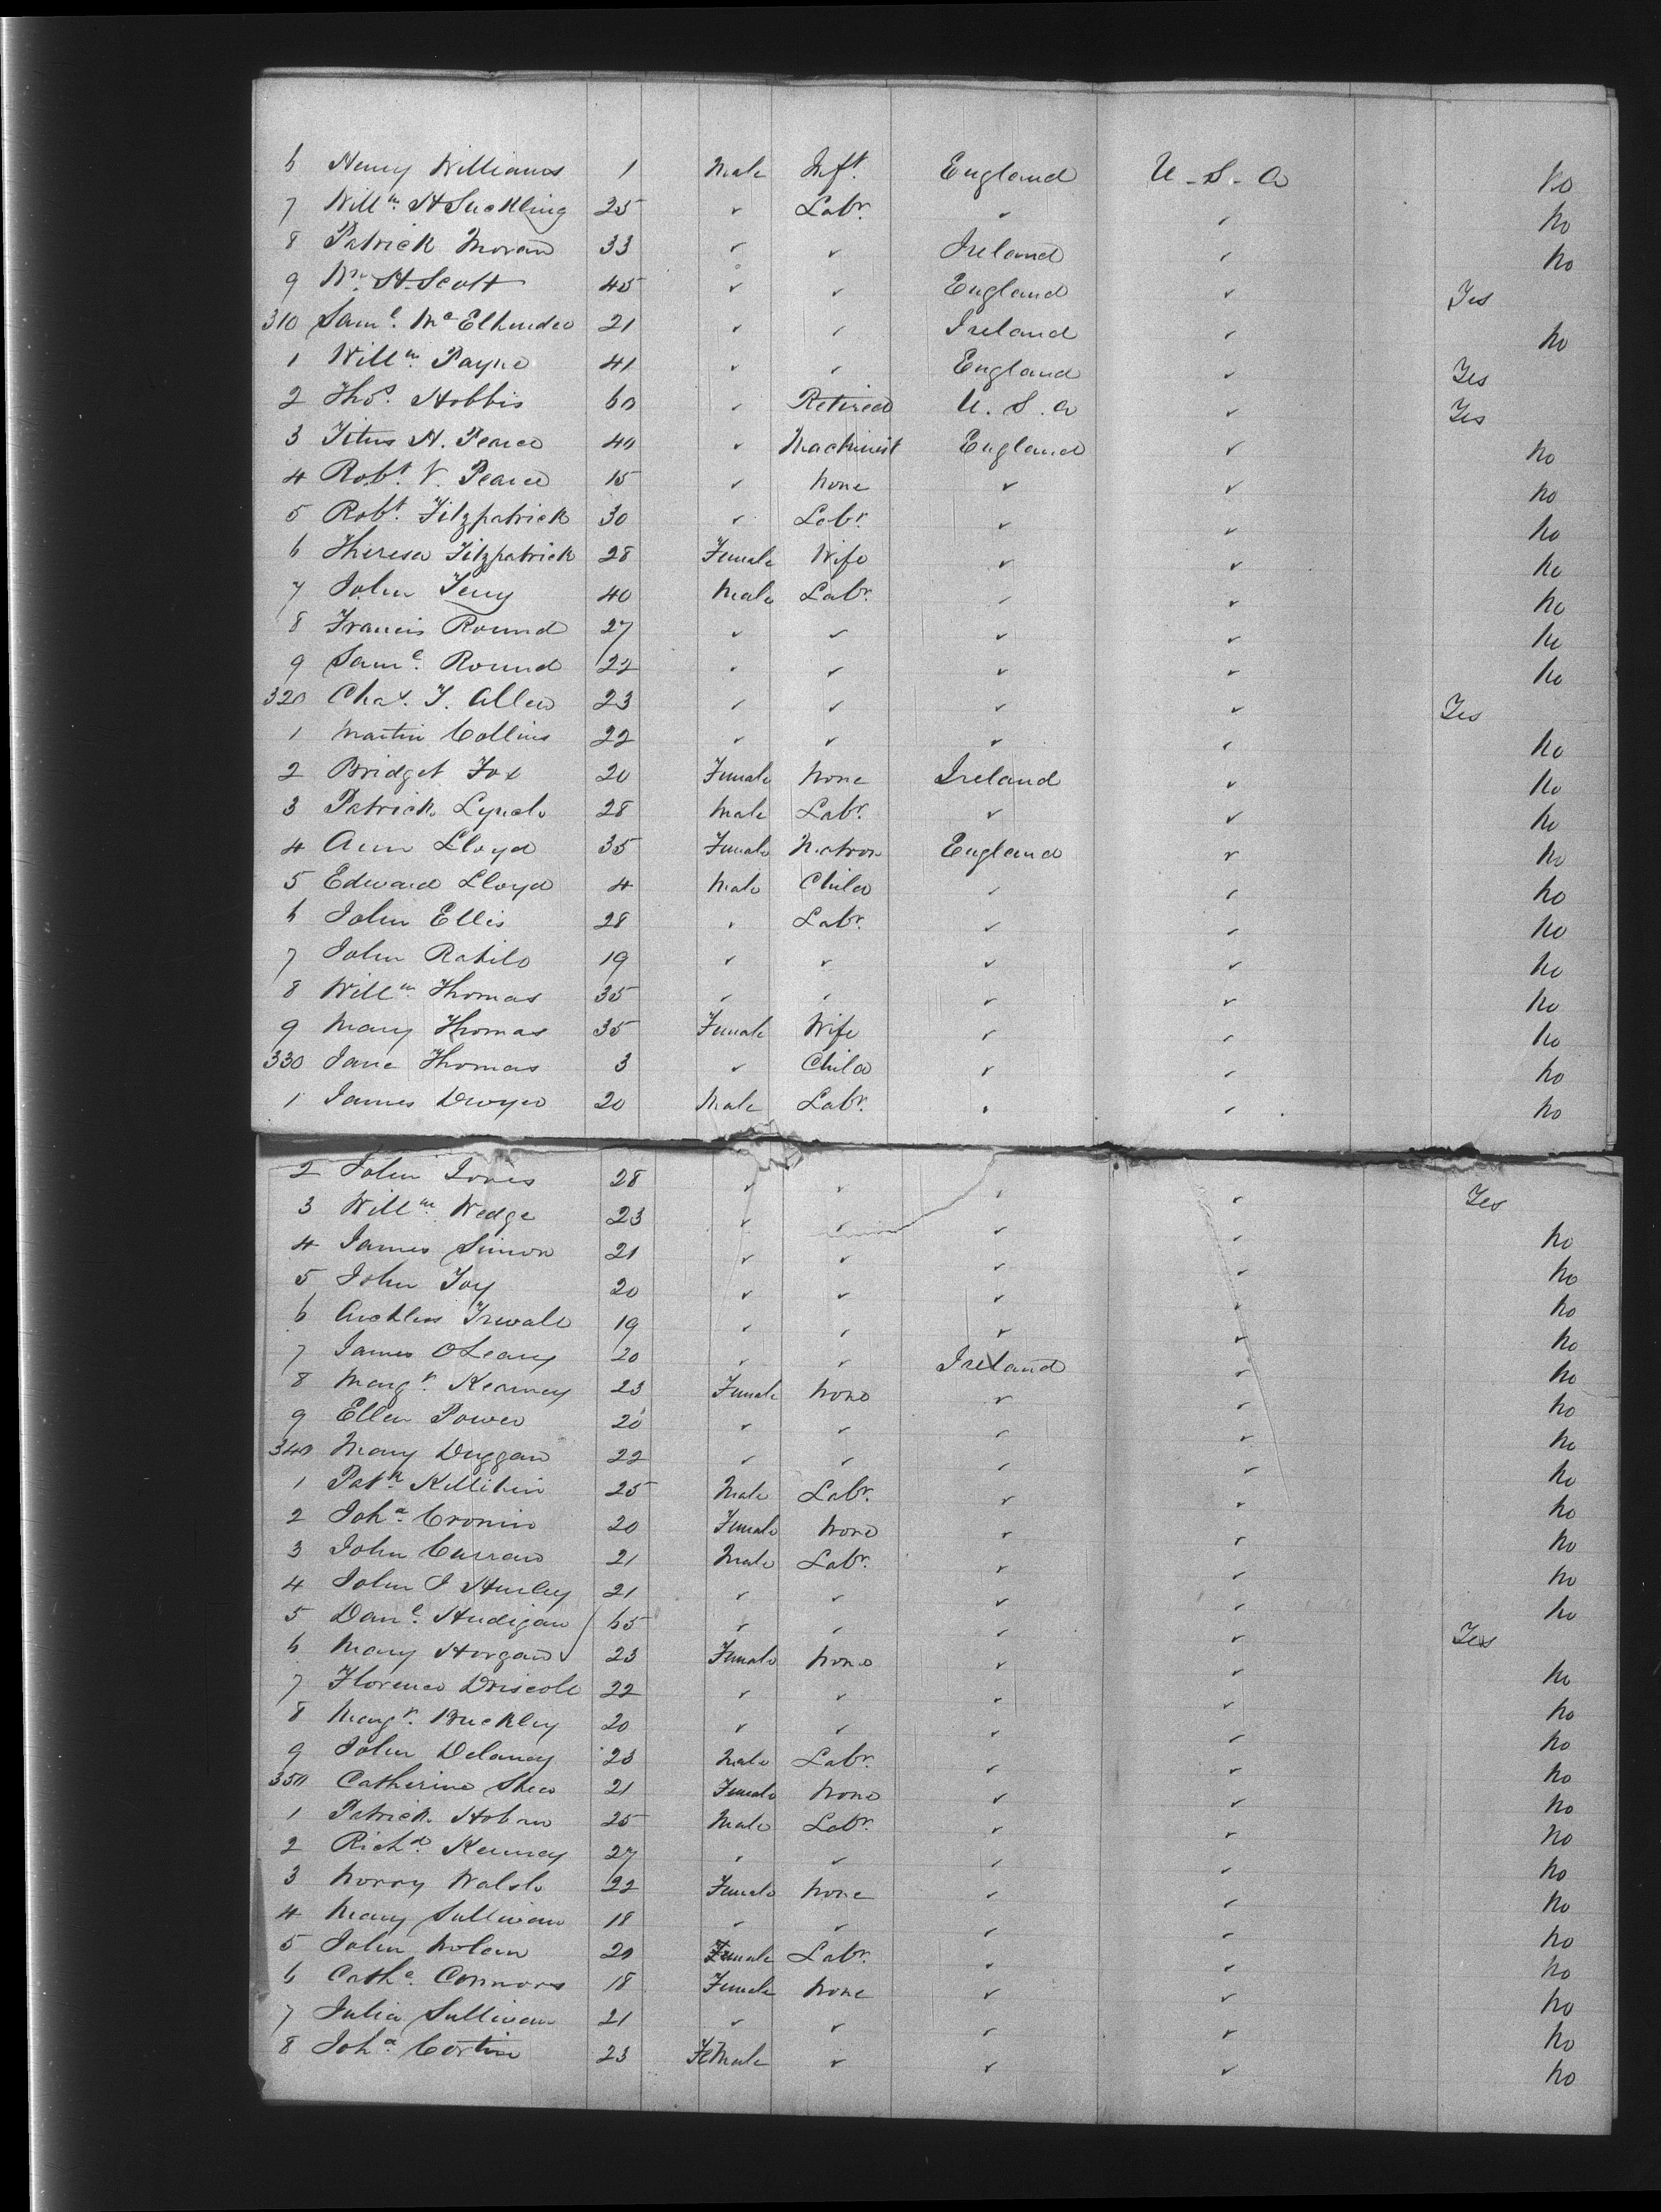 6 Henry Williams 1 Male Inft. England U-S-A No
7 Willm. H Suckling 25 " Labr. " " No
8 Patrick Moran 33 " " Ireland " No
9 Wm. H. Scott 45 " " England " Yes
310 Saml. Mc 21 " " Ireland " No
1 Willm. Payne 41 " " England " Yes
2 Thos. Hobbis 60 " Retired U.S.A " Yes
3 Titus H. Pearce 40 " Machinist England " No
4 Robt. V. Pearce 15 " None " " No
5 Robt. Fitzpatrick 30 " Labr. " " No
6 Theresa Fitzpatrick 28 Female Wife " " No
7 John 40 Male Labr. " " No
8 Francis Round 27 " " " " No
9 Saml. Round 22 " " " " No
320 Chas. T. Allen 23 " " " " Yes
1 Martin Collins 22 " " " " No
2 Bridget Fox 20 Female None Ireland " No
3 Patrick Lynch 28 Male Labr. " " No
4 Ann Lloyd 35 Female Matron England " No
5 Edward Lloyd 4 Male Child " " No
6 John Ellis 28 " Labr. " " No
7 John 19 " " " " No
8 Willm. Thomas 35 " " " " No
9 Mary Thomas 35 Female Wife " " No
330 Jane Thomas 3 " Child " " No
1 James Dwyer 20 Male Labr. " " No
2 John Jones 28 " " " " Yes
3 Willm. Wedge 23 " " " " No
4 James Simon 21 " " " " No
5 John Joy 20 " " " " No
6 19 " " " " No
7 James OLeary 20 " " Ireland " No
8 Margt. Kearney 23 Female None " " No
9 Ellen Power 20 " " " " No
340 Mary Duggan 22 " " " " No
1 Patk. Killihin 25 Male Labr. " " No
2 Joha. Cronin 20 Female None " " No
3 John Curran 21 Male Labr. " " No
4 John J Hurley 21 " " " " No
5 Danl. Hudigan 65 " " " " Yes
6 Mary Horgan 23 Female None " " No
7 Florence Driscoll 22 " " " " No
8 Margt. Buckley 20 " " " " No
9 John Delaney 23 Male Labr. " " No
350 Catherine Shea 21 Female None " " No
1 Patrick Hoban 25 Male Labr. " " No
2 Richd. Kenney 27 " " " " No
3 Norry Walsh 22 Female None " " No
4 Mary Sullivan 18 " " " " No
5 John Nolan 20 Female Labr. " " No
6 Cathe. Connors 18 Female None " " No
7 Julia Sullivan 21 " " " " No
8 Joha. Cortin 23 Female " " " No